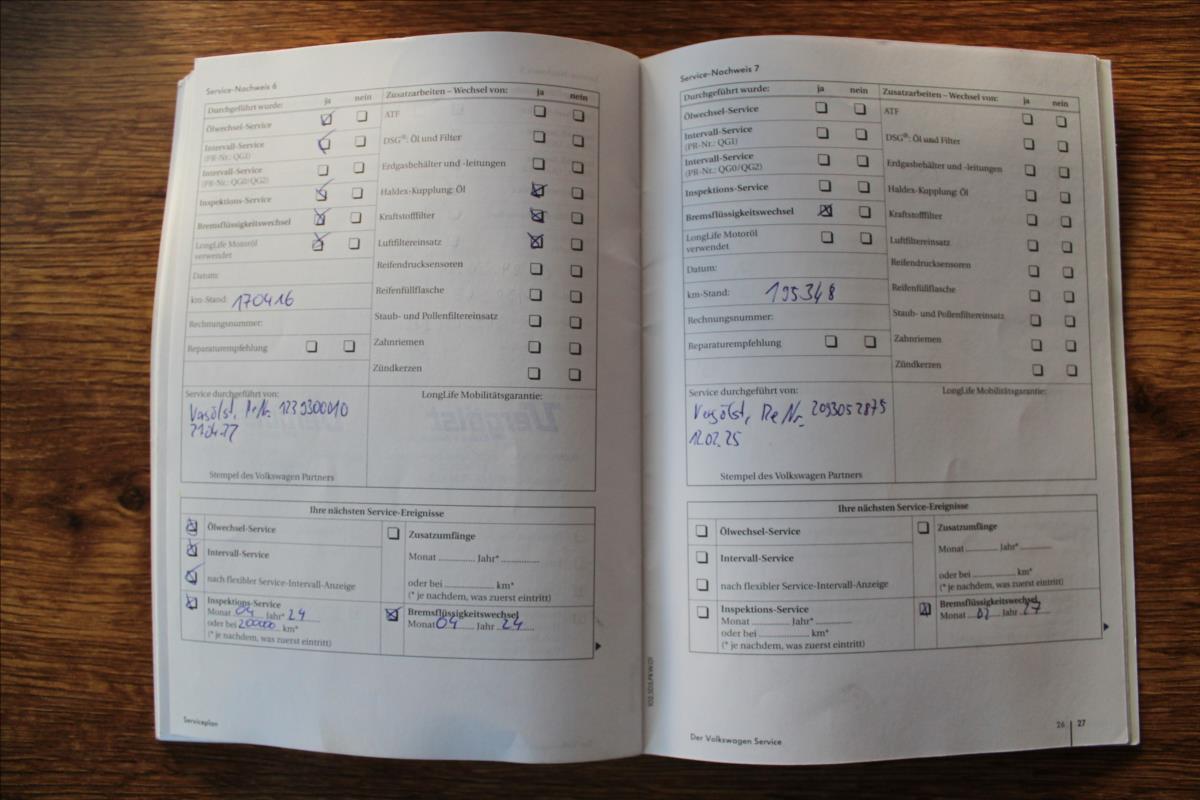 Service-Nachweis 6
Durchgeführt wurde: ja nein
Ölwechsel-Service
Intervall-Service
(PR-Nr.: QG1)
Intervall-Service
(PR-Nr.: QG0/QG2)
Inspektions-Service
Bremsflüssigkeitswechsel
LongLife Motoröl
verwendet
Datum:
km-Stand: 170416
Rechnungsnummer:
Reparaturempfehlung
Zusatzarbeiten – Wechsel von: ja nein
ATF
DSG®: Öl und Filter
Erdgasbehälter und -leitungen
Haldex-Kupplung: Öl
Kraftstofffilter
Luftfiltereinsatz
Reifendrucksensoren
Reifenfüllflasche
Staub- und Pollenfiltereinsatz
Zahnriemen
Zündkerzen
Service durchgeführt von:
Vergölst, 1239300010
LongLife Mobilitätsgarantie:
Stempel des Volkswagen Partners
Ihre nächsten Service-Ereignisse
Ölwechsel-Service
Intervall-Service
nach flexibler Service-Intervall-Anzeige
Inspektions-Service
Monat 04 Jahr* 24
oder bei 200000 km*
(* je nachdem, was zuerst eintritt)
Zusatzumfänge
Monat ........... Jahr* ............
oder bei ................ km*
(* je nachdem, was zuerst eintritt)
Bremsflüssigkeitswechsel
Monat 04 Jahr 24
Serviceplan
Service-Nachweis 7
Durchgeführt wurde: ja nein
Ölwechsel-Service
Intervall-Service
(PR-Nr.: QG1)
Intervall-Service
(PR-Nr.: QG0/QG2)
Inspektions-Service
Bremsflüssigkeitswechsel
LongLife Motoröl
verwendet
Datum:
km-Stand: 195348
Rechnungsnummer:
Reparaturempfehlung
Zusatzarbeiten – Wechsel von: ja nein
ATF
DSG®: Öl und Filter
Erdgasbehälter und -leitungen
Haldex-Kupplung: Öl
Kraftstofffilter
Luftfiltereinsatz
Reifendrucksensoren
Reifenfüllflasche
Staub- und Pollenfiltereinsatz
Zahnriemen
Zündkerzen
Service durchgeführt von:
Vergölst, Re Nr. 2093052875
12.02.25
LongLife Mobilitätsgarantie:
Stempel des Volkswagen Partners
Ihre nächsten Service-Ereignisse
Ölwechsel-Service
Intervall-Service
nach flexibler Service-Intervall-Anzeige
Inspektions-Service
Monat ........... Jahr* ...........
oder bei ................ km*
(* je nachdem, was zuerst eintritt)
Zusatzumfänge
Monat .......... Jahr* ..........
oder bei ............... km*
(* je nachdem, was zuerst eintritt)
Bremsflüssigkeitswechsel
Monat 02 Jahr 27
Der Volkswagen Service
26 | 27